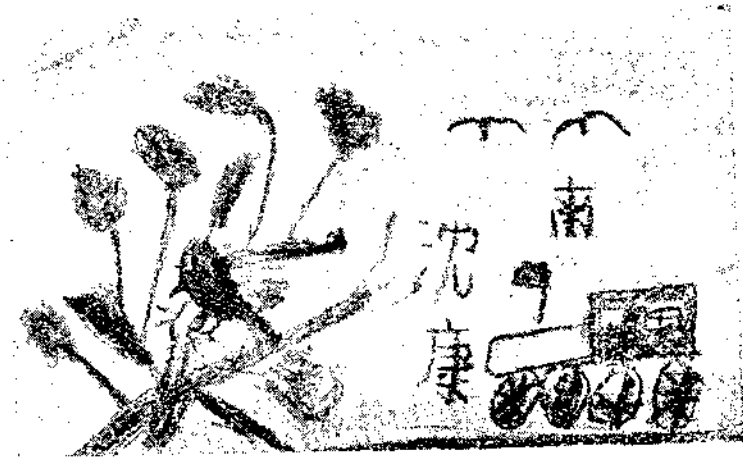 南
沈康